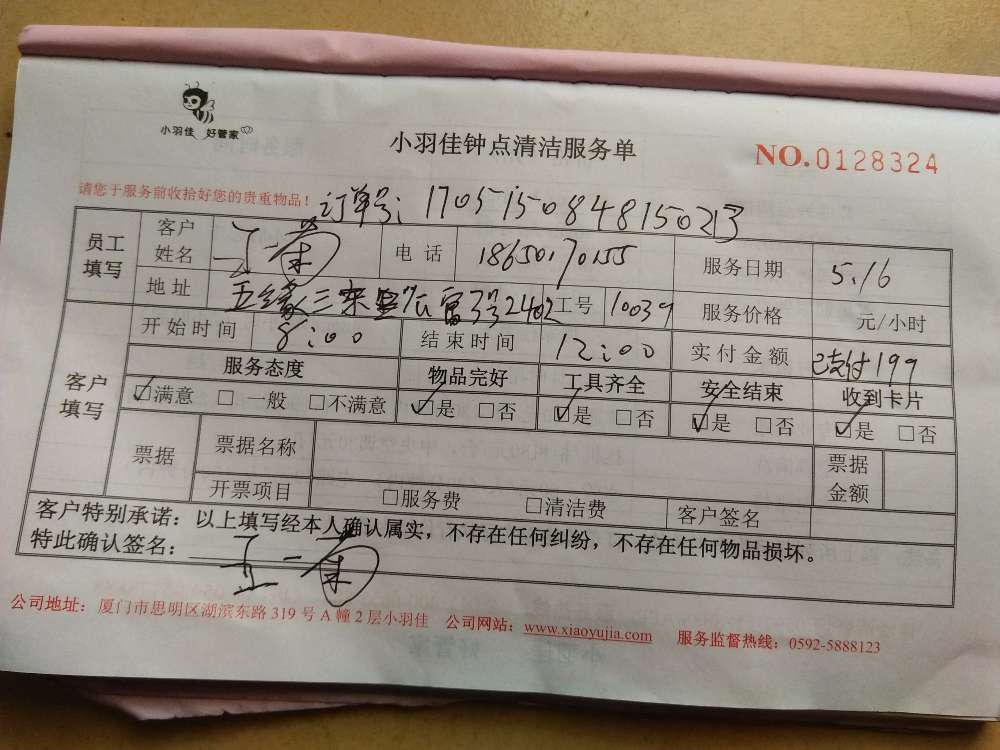 小羽佳 好管家
小羽佳钟点清洁服务单
NO.0128324
请您于服务前收拾好您的贵重物品!
订单号: 17051508484815023
员工填写 客户姓名 王一 电话 18650170155 服务日期 5.16
地址 五缘三 2402 工号 10039 服务价格 元/小时
开始时间 8:00 结束时间 12:00 实付金额 已支付199
客户填写 服务态度 物品完好 工具齐全 安全结束 收到卡片
☑满意 □一般 □不满意 ☑是 □否 ☑是 □否 ☑是 □否 ☑是 □否
票据 票据名称 票据金额
开票项目 □服务费 □清洁费 客户签名
客户特别承诺:以上填写经本人确认属实,不存在任何纠纷,不存在任何物品损坏。
特此确认签名: 王一
公司地址:厦门市思明区湖滨东路319号A幢2层小羽佳 公司网站:www.xiaoyujia.com 服务监督热线:0592-5888123